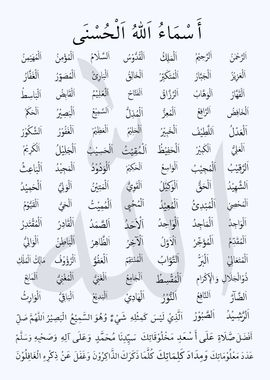 أَسْمَاءُ اللهُ الْحُسْنَى
الرَّحْمَنُ الرَّحِيْمُ الْمَلِكُ الْقُدُّوْسُ السَّلَامُ الْمُؤْمِنُ الْمُهَيْمِنُ
الْعَزِيْزُ الْجَبَّارُ الْمُتَكَبِّرُ الْخَالِقُ الْبَارِئُ الْمُصَوِّرُ الْغَفَّارُ
الْقَهَّارُ الْوَهَّابُ الرَّزَّاقُ الْفَتَّاحُ الْعَلِيْمُ الْقَابِضُ الْبَاسِطُ
الْخَافِضُ الرَّافِعُ الْمُعِزُّ الْمُذِلُّ السَّمِيْعُ الْبَصِيْرُ الْحَكَمُ
الْعَدْلُ اللَّطِيْفُ الْخَبِيْرُ الْحَلِيْمُ الْعَظِيْمُ الْغَفُوْرُ الشَّكُوْرُ
الْعَلِيُّ الْكَبِيْرُ الْحَفِيْظُ الْمُقِيْتُ الْحَسِيْبُ الْجَلِيْلُ الْكَرِيْمُ
الرَّقِيْبُ الْمُجِيْبُ الْوَاسِعُ الْحَكِيْمُ الْوَدُوْدُ الْمَجِيْدُ الْبَاعِثُ
الشَّهِيْدُ الْحَقُّ الْوَكِيْلُ الْقَوِيُّ الْمَتِيْنُ الْوَلِيُّ الْحَمِيْدُ
الْمُحْصِيْ الْمُبْدِئُ الْمُعِيْدُ الْمُحْيِيْ الْمُمِيْتُ الْحَيُّ الْقَيُّوْمُ
الْوَاجِدُ الْمَاجِدُ الْوَاحِدُ الْاَحَدُ الصَّمَدُ الْقَادِرُ الْمُقْتَدِرُ
الْمُقَدِّمُ الْمُؤَخِّرُ الْاَوَّلُ الْآخِرُ الظَّاهِرُ الْبَاطِنُ الْوَالِيْ
الْمُتَعَالِيْ الْبَرُّ التَّوَّابُ الْمُنْتَقِمُ الْعَفُوُّ الرَّؤُوْفُ مَالِكُ الْمُلْكِ
ذُوالْجَلَالِ وَالْإِكْرَامِ الْمُقْسِطُ الْجَامِعُ الْغَنِيُّ الْمُغْنِيْ الْمَانِعُ
الضَّارُّ النَّافِعُ النُّوْرُ الْهَادِيْ الْبَدِيْعُ الْبَاقِيْ الْوَارِثُ
الرَّشِيْدُ الصَّبُوْرُ الَّذِيْ لَيْسَ كَمِثْلِهِ شَيْءٌ وَهُوَ السَّمِيْعُ الْبَصِيْرُ اللهُمَّ صَلِّ
اَفْضَلَ صَلَاةٍ عَلَى أَسْعَدِ مَخْلُوْقَاتِكَ سَيِّدِنَا مُحَمَّدٍ وَعَلَى آلِهِ وَصَحْبِهِ وَسَلِّمْ
عَدَدَ مَعْلُوْمَاتِكَ وَمِدَادَ كَلِمَاتِكَ كُلَّمَا ذَكَرَكَ الذَّاكِرُوْنَ وَغَفَلَ عَنْ ذِكْرِهِ الْغَافِلُوْنَ